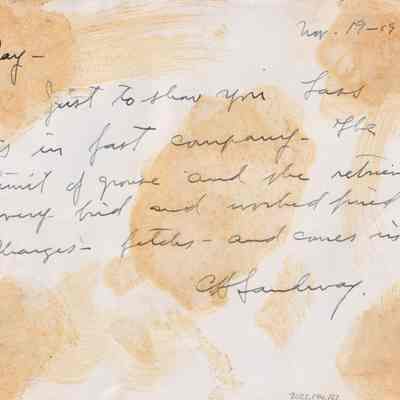 Nov. 19-19
Day-
Just to show you Lass
is in fast company- The
limit of grouse and she retrieve
very bird and worked fine
Charges- fetch- and comes in
2022.196.121